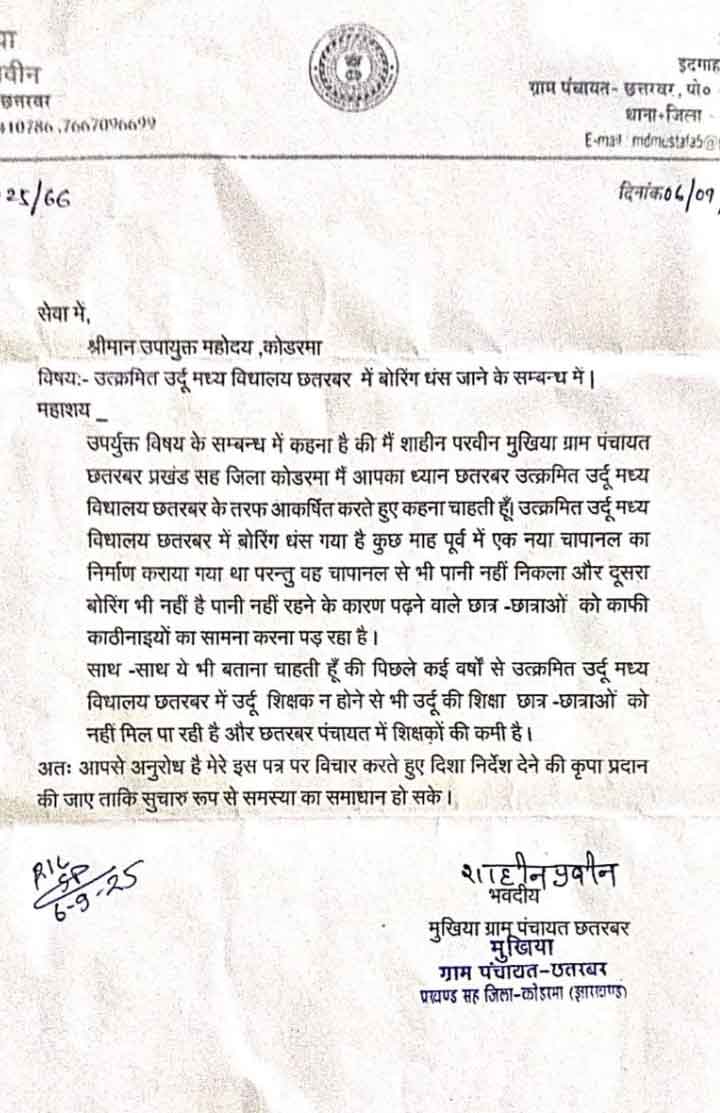 या
वीन
छत्तरवर
410786 ,7667096699
इदगाह
ग्राम पंचायत- छत्तरवर, पो०
थाना+जिला -
E-mail : mdmustafa5@
25/66
दिनांक 06/09/
सेवा में,
श्रीमान उपायुक्त महोदय ,कोडरमा
विषय:- उत्क्रमित उर्दू मध्य विद्यालय छतरबर में बोरिंग धंस जाने के सम्बन्ध में |
महाशय _
उपर्युक्त विषय के सम्बन्ध में कहना है की मैं शाहीन परवीन मुखिया ग्राम पंचायत
छतरबर प्रखंड सह जिला कोडरमा मैं आपका ध्यान छतरबर उत्क्रमित उर्दू मध्य
विधालय छतरबर के तरफ आकर्षित करते हुए कहना चाहती हूँ| उत्क्रमित उर्दू मध्य
विधालय छतरबर में बोरिंग धंस गया है कुछ माह पूर्व में एक नया चापानल का
निर्माण कराया गया था परन्तु वह चापानल से भी पानी नहीं निकला और दूसरा
बोरिंग भी नहीं है पानी नहीं रहने के कारण पढ़ने वाले छात्र -छात्राओं को काफी
काठीनाइयों का सामना करना पड़ रहा है।
साथ -साथ ये भी बताना चाहती हूँ की पिछले कई वर्षों से उत्क्रमित उर्दू मध्य
विधालय छतरबर में उर्दू शिक्षक न होने से भी उर्दू की शिक्षा छात्र -छात्राओं को
नहीं मिल पा रही है और छतरबर पंचायत में शिक्षकों की कमी है।
अतः आपसे अनुरोध है मेरे इस पत्र पर विचार करते हुए दिशा निर्देश देने की कृपा प्रदान
की जाए ताकि सुचारु रूप से समस्या का समाधान हो सके।
6-9-25
शाहीन प्रवीन
भवदीय
मुखिया ग्राम पंचायत छतरबर
मुखिया
ग्राम पंचायत-छतरबर
प्रखण्ड सह जिला-कोडरमा (झारखण्ड)